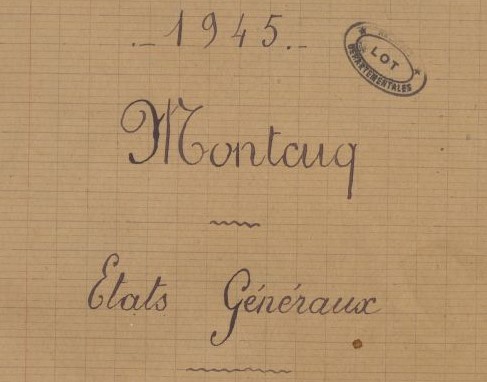 ._ 1945._
LOT
DÉPARTEMENTALES
Montcuq
Etats Généraux